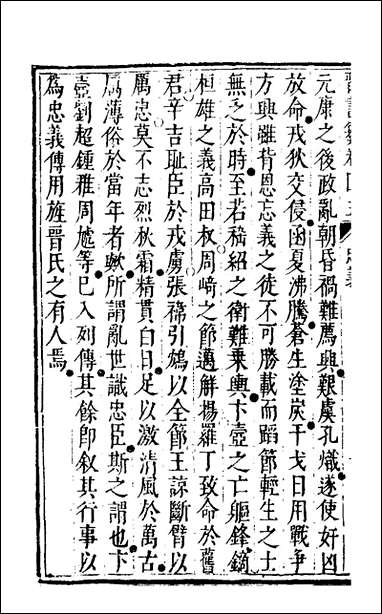 元康之後政亂朝昏禍難薦興艱虞孔熾遂使奸凶
放命戎狄交侵函夏沸騰蒼生塗炭干戈日用戰爭
方興雖背恩忘義之徒不可勝載而蹈節輕生之士
無乏於時至若嵇紹之衛難乗輿卞壺之亡軀鋒鏑
桓雄之義高田叔周﨑之節邁解揚羅丁致命於舊
君辛吉耻臣於戎虜張禕引鴆以全節王諒斷臂以
厲忠莫不志烈秋霜精貫白日足以激清風於萬古
厲薄俗於當年者歟所謂亂世識忠臣斯之謂也卞
壼劉超鍾雅周虓等已入列傳其餘即敘其行事以
為忠義傳用旌晉氏之有人焉